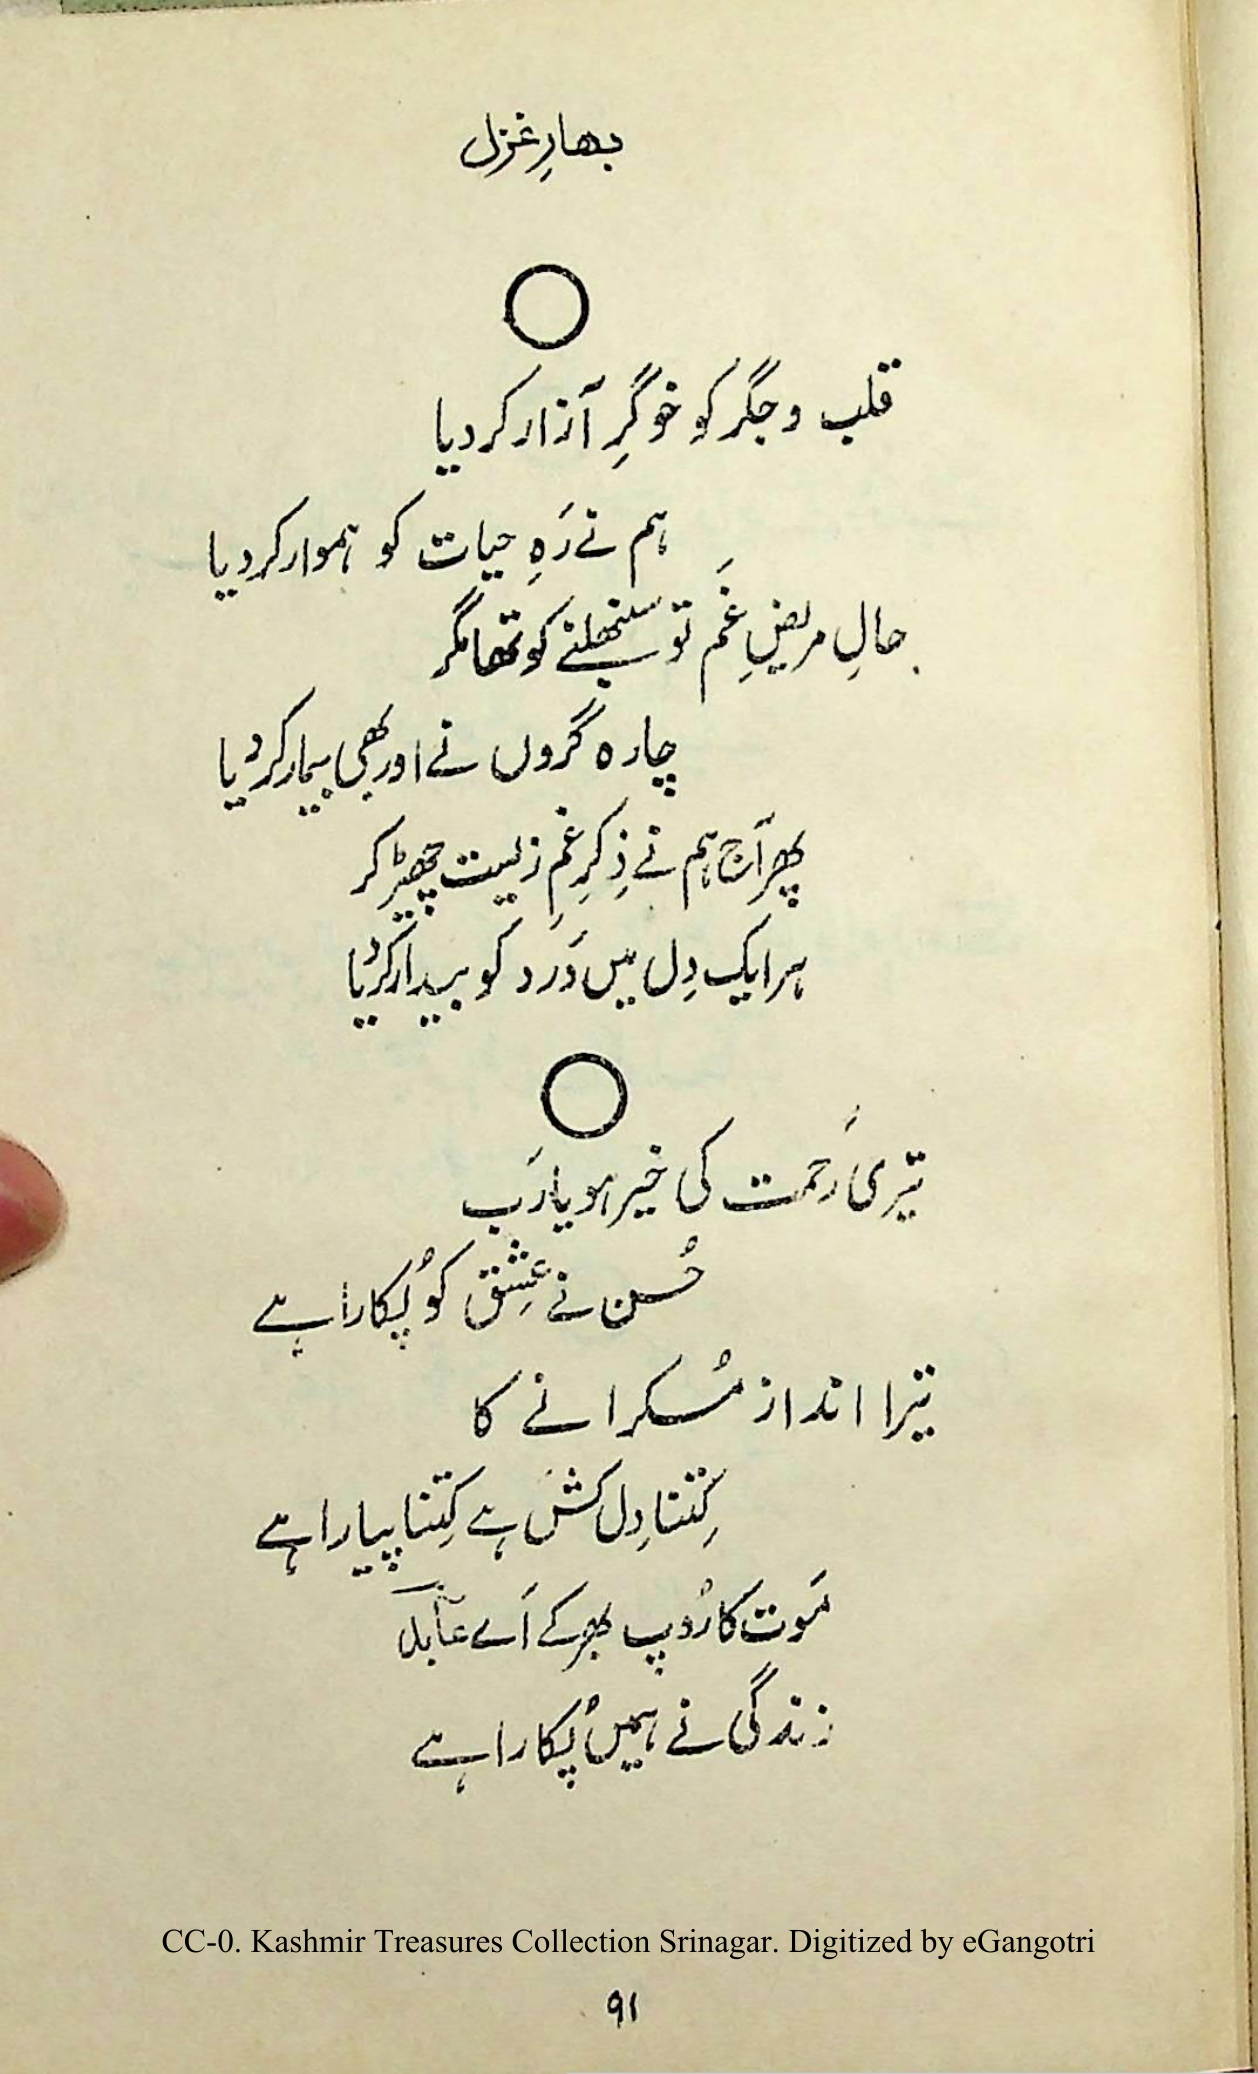 بھارِ غزل
قلب و جگر کو خوگرِ آزار کر دیا
ہم نے رَہِ حیات کو ہموار کر دیا
حالِ مریضِ غَم تو سنبھلنے کو تھا مگر
چارہ گروں نے اور بھی بیمار کر دیا
پھر آج ہم نے ذِکرِ غمِ زیست چھیڑ کر
ہر ایک دِل میں دَرد کو بیدار کر دیا
تیری رَحمت کی خیر ہو یا رَب
حُسن نے عِشق کو پُکارا ہے
تیرا انداز مُسکرانے کا
کِتنا دِل کَش ہے کِتنا پیارا ہے
مَوت کا رُوپ بھر کے اَے عابدؔ
زندگی نے ہمیں پُکارا ہے
CC-0. Kashmir Treasures Collection Srinagar. Digitized by eGangotri
۹۱